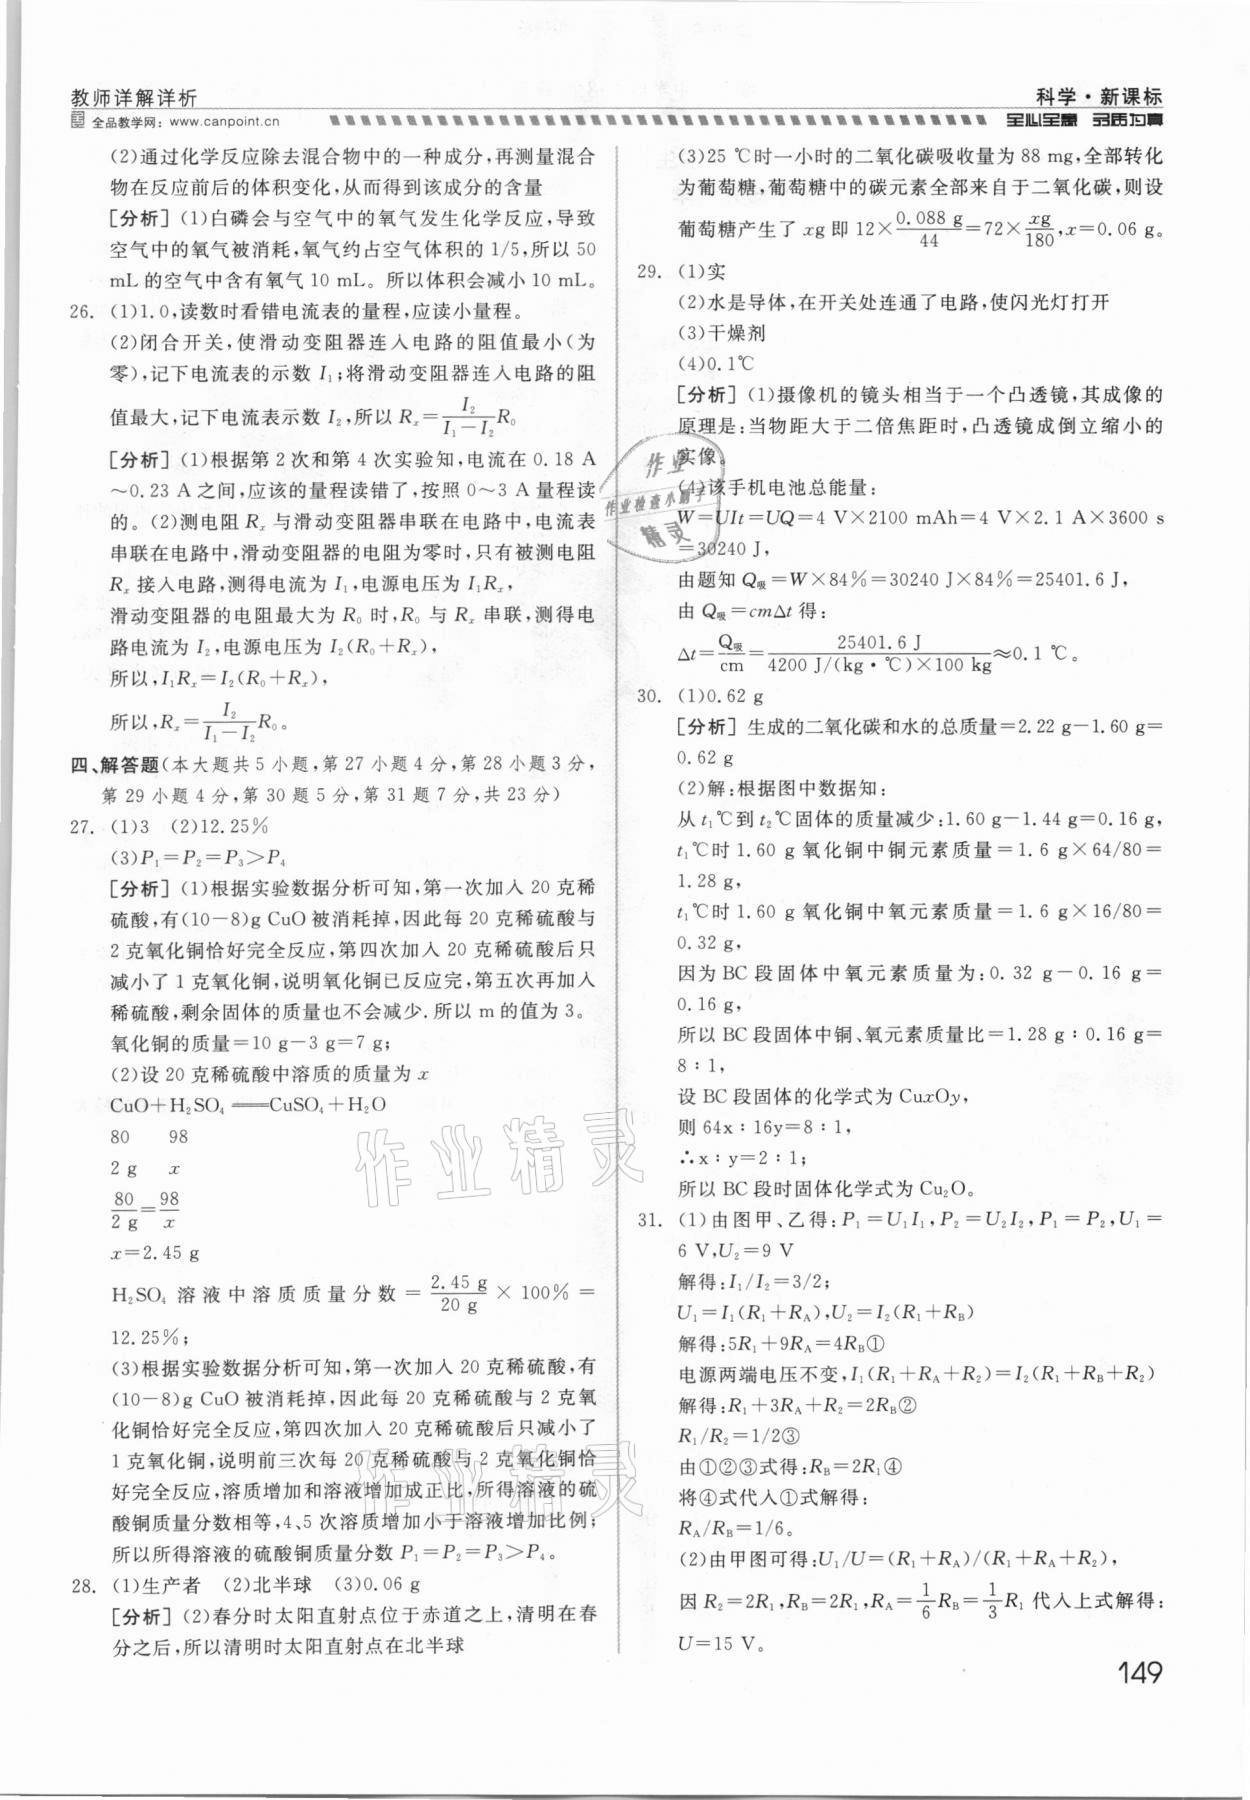 教师详解详析
全品教学网：www.canpoint.cn
科学·新课标
全心全意 品质为真
(2)通过化学反应除去混合物中的一种成分,再测量混合
物在反应前后的体积变化,从而得到该成分的含量
[分析] (1)白磷会与空气中的氧气发生化学反应,导致
空气中的氧气被消耗,氧气约占空气体积的 1/5,所以 50
mL 的空气中含有氧气 10 mL。所以体积会减小 10 mL。
26. (1)1.0,读数时看错电流表的量程,应读小量程。
(2)闭合开关,使滑动变阻器连入电路的阻值最小(为
零),记下电流表的示数 I₁;将滑动变阻器连入电路的阻
值最大,记下电流表示数 I₂,所以 Rₓ=I₂/(I₁−I₂)R₀
[分析] (1)根据第 2 次和第 4 次实验知,电流在 0.18 A
～0.23 A 之间,应该的量程读错了,按照 0～3 A 量程读
的。(2)测电阻 Rₓ 与滑动变阻器串联在电路中,电流表
串联在电路中,滑动变阻器的电阻为零时,只有被测电阻
Rₓ 接入电路,测得电流为 I₁,电源电压为 I₁Rₓ,
滑动变阻器的电阻最大为 R₀ 时,R₀ 与 Rₓ 串联,测得电
路电流为 I₂,电源电压为 I₂(R₀+Rₓ),
所以,I₁Rₓ=I₂(R₀+Rₓ),
所以,Rₓ=I₂/(I₁−I₂)R₀。
四、解答题(本大题共 5 小题,第 27 小题 4 分,第 28 小题 3 分,
第 29 小题 4 分,第 30 题 5 分,第 31 题 7 分,共 23 分)
27. (1)3 (2)12.25%
(3)P₁=P₂=P₃>P₄
[分析] (1)根据实验数据分析可知,第一次加入 20 克稀
硫酸,有(10−8)g CuO 被消耗掉,因此每 20 克稀硫酸与
2 克氧化铜恰好完全反应,第四次加入 20 克稀硫酸后只
减小了 1 克氧化铜,说明氧化铜已反应完,第五次再加入
稀硫酸,剩余固体的质量也不会减少.所以 m 的值为 3。
氧化铜的质量=10 g−3 g=7 g;
(2)设 20 克稀硫酸中溶质的质量为 x
CuO+H₂SO₄══CuSO₄+H₂O
80 98
2 g x
80/2 g=98/x
x=2.45 g
H₂SO₄ 溶液中溶质质量分数=2.45 g/20 g×100%=
12.25%;
(3)根据实验数据分析可知,第一次加入 20 克稀硫酸,有
(10−8)g CuO 被消耗掉,因此每 20 克稀硫酸与 2 克氧
化铜恰好完全反应,第四次加入 20 克稀硫酸后只减小了
1 克氧化铜,说明前三次每 20 克稀硫酸与 2 克氧化铜恰
好完全反应,溶质增加和溶液增加成正比,所得溶液的硫
酸铜质量分数相等,4、5 次溶质增加小于溶液增加比例;
所以所得溶液的硫酸铜质量分数 P₁=P₂=P₃>P₄。
28. (1)生产者 (2)北半球 (3)0.06 g
[分析] (2)春分时太阳直射点位于赤道之上,清明在春
分之后,所以清明时太阳直射点在北半球
(3)25 ℃时一小时的二氧化碳吸收量为 88 mg,全部转化
为葡萄糖,葡萄糖中的碳元素全部来自于二氧化碳,则设
葡萄糖产生了 xg 即 12×0.088 g/44=72×xg/180,x=0.06 g。
29. (1)实
(2)水是导体,在开关处连通了电路,使闪光灯打开
(3)干燥剂
(4)0.1℃
[分析] (1)摄像机的镜头相当于一个凸透镜,其成像的
原理是:当物距大于二倍焦距时,凸透镜成倒立缩小的
实像。
(4)该手机电池总能量:
W=UIt=UQ=4 V×2100 mAh=4 V×2.1 A×3600 s
=30240 J,
由题知 Q吸=W×84%=30240 J×84%=25401.6 J,
由 Q吸=cmΔt 得:
Δt=Q吸/cm=25401.6 J/(4200 J/(kg·℃)×100 kg)≈0.1 ℃。
30. (1)0.62 g
[分析] 生成的二氧化碳和水的总质量=2.22 g−1.60 g=
0.62 g
(2)解:根据图中数据知:
从 t₁℃到 t₂℃固体的质量减少:1.60 g−1.44 g=0.16 g,
t₁℃时 1.60 g 氧化铜中铜元素质量=1.6 g×64/80=
1.28 g,
t₁℃时 1.60 g 氧化铜中氧元素质量=1.6 g×16/80=
0.32 g,
因为 BC 段固体中氧元素质量为:0.32 g−0.16 g=
0.16 g,
所以 BC 段固体中铜、氧元素质量比=1.28 g∶0.16 g=
8∶1,
设 BC 段固体的化学式为 CuxOy,
则 64x∶16y=8∶1,
∴x∶y=2∶1;
所以 BC 段时固体化学式为 Cu₂O。
31. (1)由图甲、乙得:P₁=U₁I₁,P₂=U₂I₂,P₁=P₂,U₁=
6 V,U₂=9 V
解得:I₁/I₂=3/2;
U₁=I₁(R₁+R_A),U₂=I₂(R₁+R_B)
解得:5R₁+9R_A=4R_B①
电源两端电压不变,I₁(R₁+R_A+R₂)=I₂(R₁+R_B+R₂)
解得:R₁+3R_A+R₂=2R_B②
R₁/R₂=1/2③
由①②③式得:R_B=2R₁④
将④式代人①式解得:
R_A/R_B=1/6。
(2)由甲图可得:U₁/U=(R₁+R_A)/(R₁+R_A+R₂),
因 R₂=2R₁,R_B=2R₁,R_A=1/6R_B=1/3R₁ 代入上式解得:
U=15 V。
149
作业
作业检查小助手
精灵
作业精灵
作业精灵